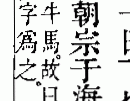 朝崇于海
牛馬。故曰
字爲之。